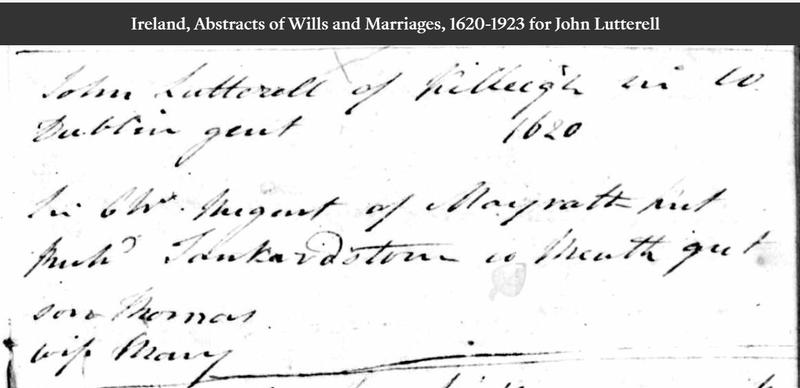 Ireland, Abstracts of Wills and Marriages, 1620-1923 for John Lutterell
John Lutterell of Killeigh in Co
Dublin gent 1620
Sir Chr. Nugent of Moyrath
Richd Tankardstown co Meath gent
son Thomas
wife Mary